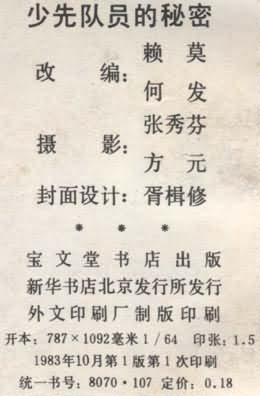 少先队员的秘密
赖莫
改编：
何发
张秀芬
摄影：
方元
封面设计：胥楫修
* * *
宝文堂书店出版
新华书店北京发行所发行
外文印刷厂制版印刷
开本：787×1092毫米1/64 印张：1.5
1983年10月第1版第1次印刷
统一书号：8070·107 定价：0.18